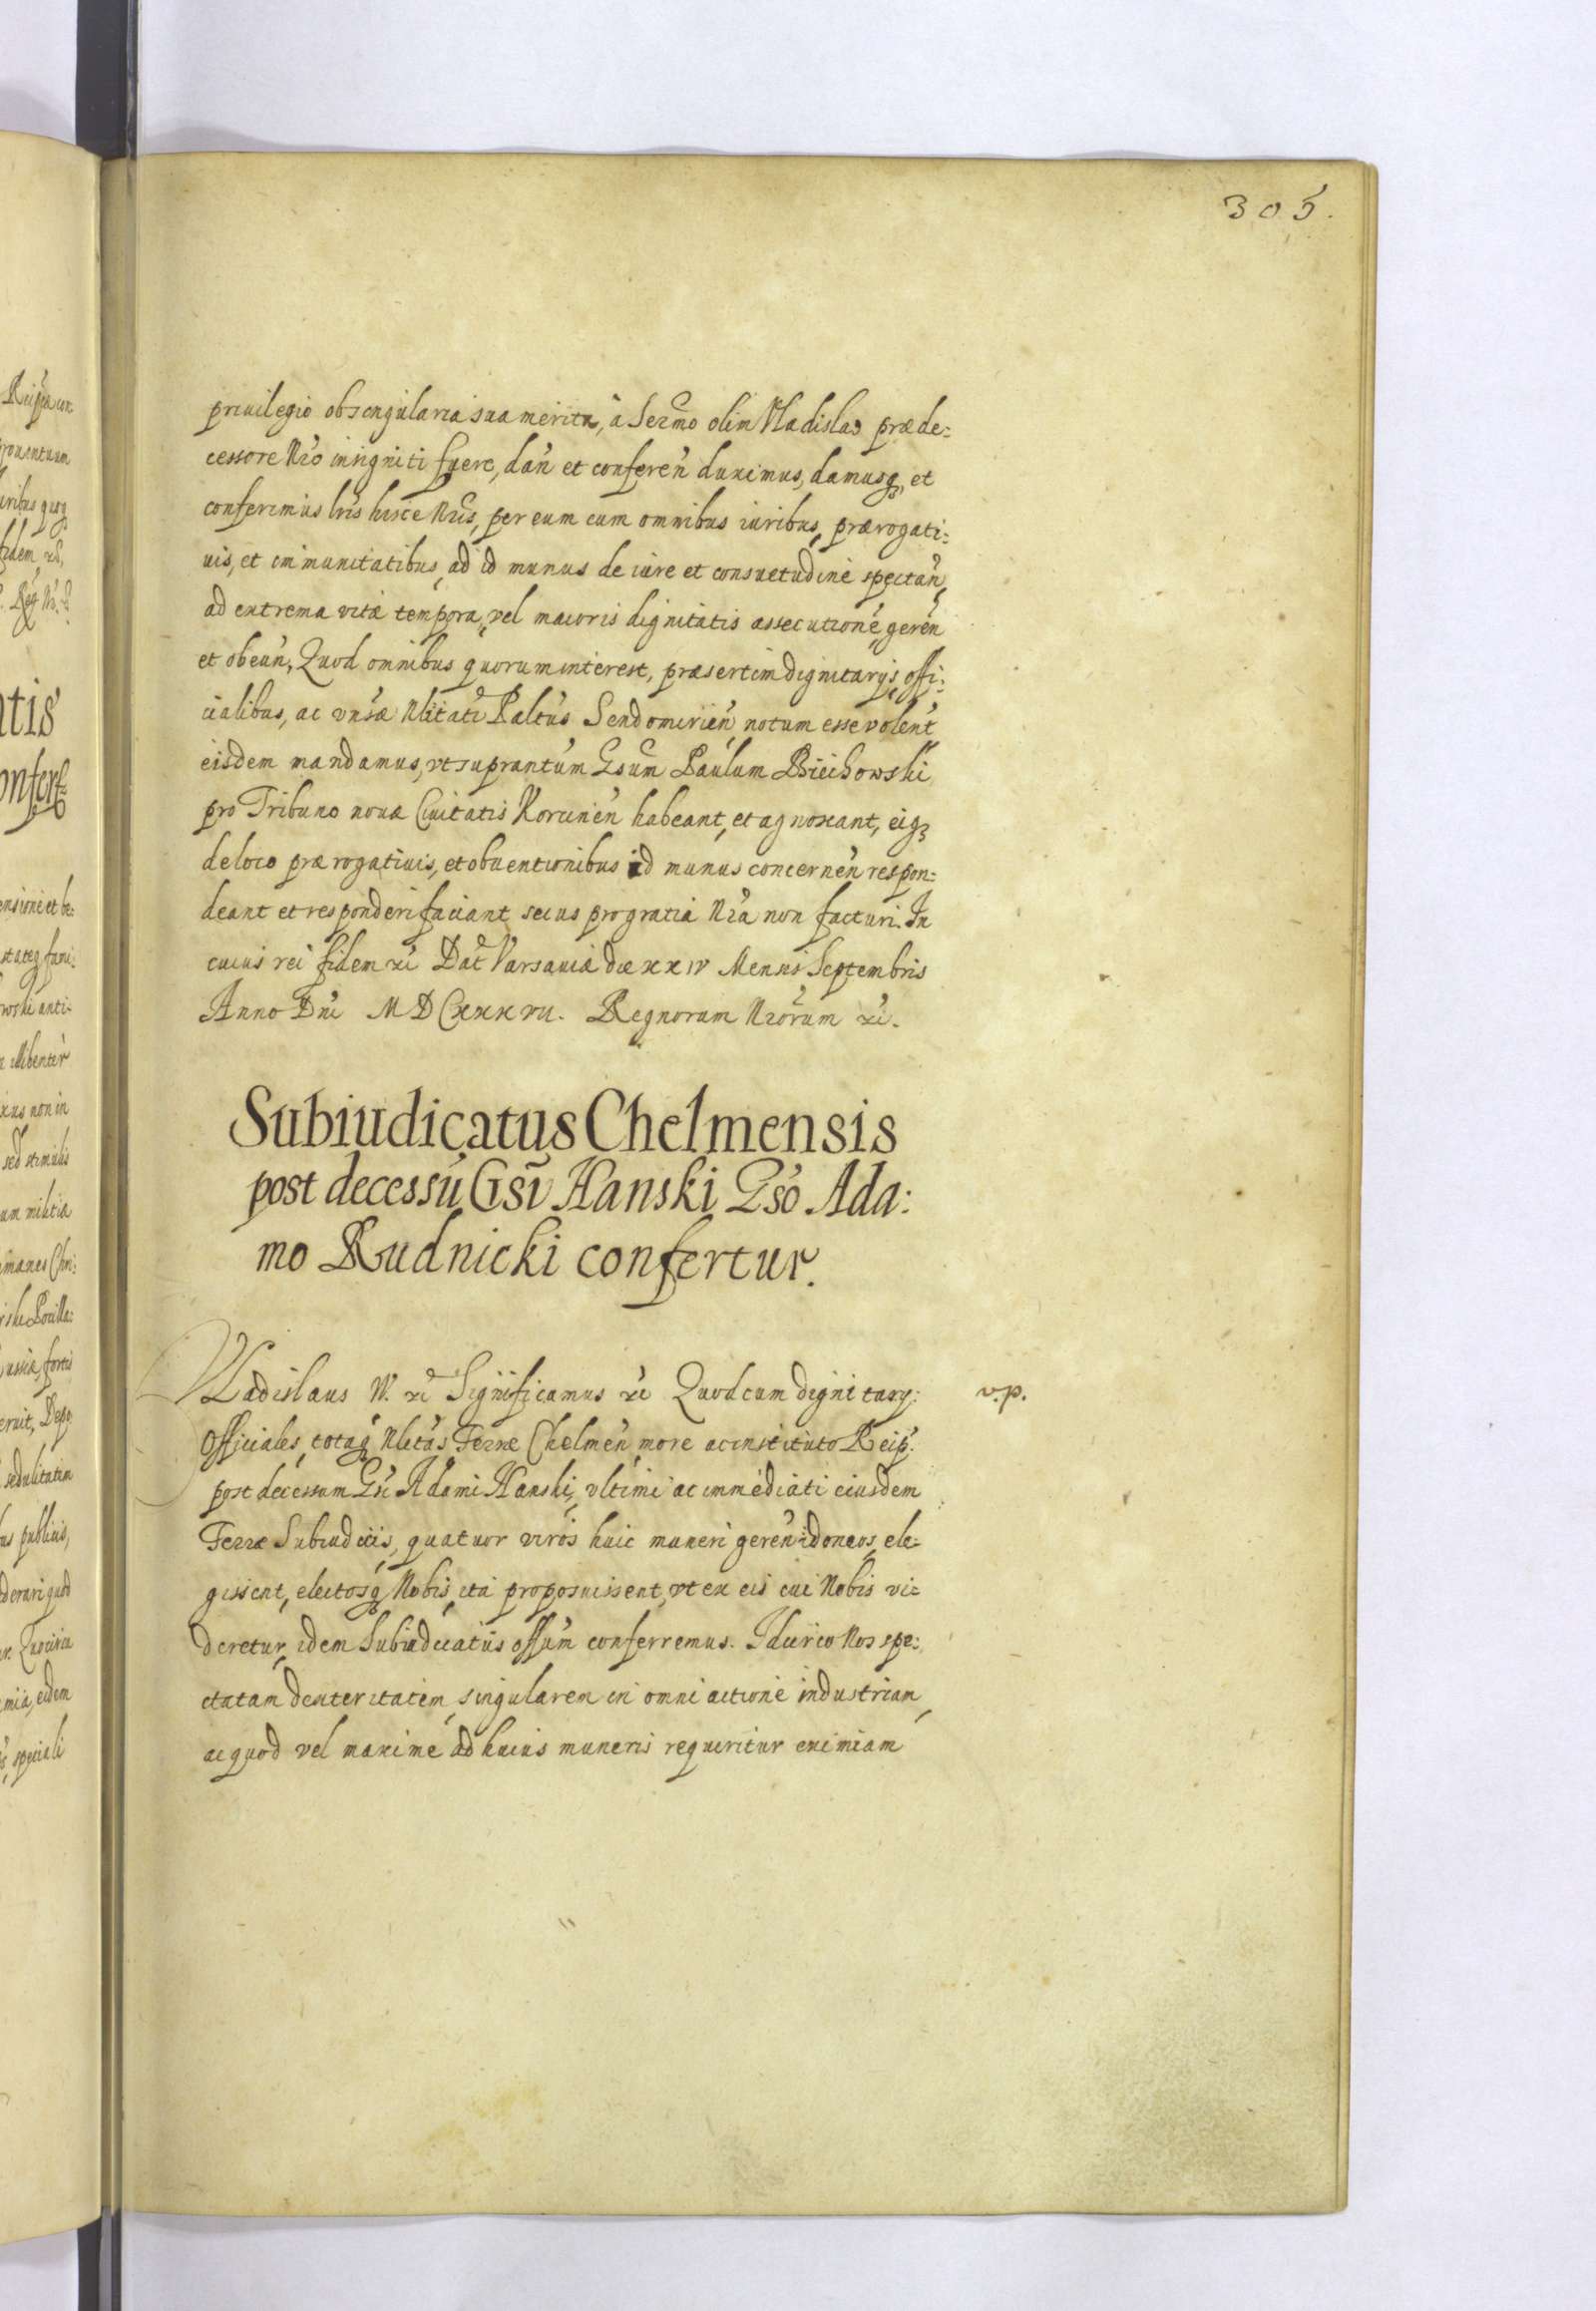 305.
priuilegio ob singularia sua merita, à Sermo olim Vladislao præde:
cessore Nro insigniti fuere, dan̄ et conferen̄ duximus, damusq, et
conferimus lris hisce Nris, per eum cum omnibus iuribus, prærogati:
uis, et immunitatibus, ad id munus de iure et consuetudine spectan̄,
ad extrema vitæ tempora, vel maioris dignitatis assecutionē, geren̄
et obeun̄, Quod omnibus quorum interest, præsertim dignitarijs, offi:
cialibus, ac vnsæ Nlitati Paltus Sendomirien̄ notum esse volent
eisdem mandamus, vt suprantum Gsum Paulum Biechowski
pro Tribuno nouæ Ciuitatis Korcinen̄ habeant, et agnoscant, eiq
de loco prærogatiuis, et obuentionibus id munus concernen̄ respon:
deant et responderi faciant secus pro gratia Nra non facturi. In
cuius rei fidem xi Dat Varsauiæ die xxiv Mensis Septembris
Anno Dni MDCxxxvii. Regnorum Nrorum xi.
Subiudicatus Chelmensis
post decessū Gsi Hanski Gso Ada:
mo Rudnicki confertur.
Vladislaus IV. xi Significamus xi Quod cum dignitary:
Officiales, totaq Nlitas Terræ Chelmen̄, more ac instituto Reip.
post decessum Gsi Adami Hanski, vltimi ac immediati eiusdem
Terræ Subiudicis, quatuor viros huic muneri geren̄ idoneos, ele:
gissent, electosq Nobis, ita proposuissent, vt ex eis cui Nobis vi:
deretur, idem Subiudicatus offum conferremus. Idcirco Nos spe:
ctatam dexteritatem, singularem in omni actione industriam,
ac quod vel maxime ad huius muneris requiritur eximiam
v.p.